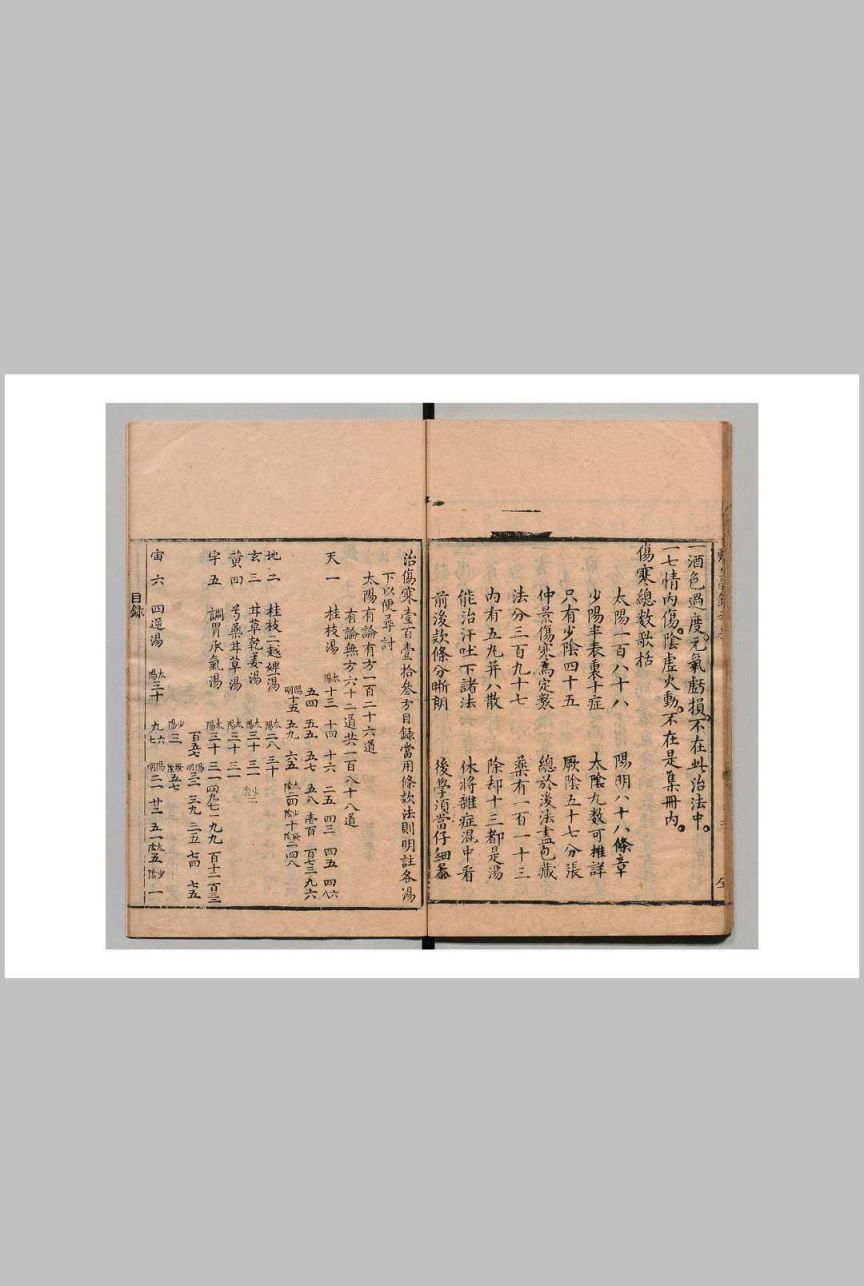 一酒色過度。元氣虧損。不在此治法中。
一七情內傷。陰虛火動。不在是集冊內。
傷寒總數歌括
太陽一百八十八 陽明八十八條章
少陽半表裏十症 太陰九數可推詳
只有少陰四十五 厥陰五十七分張
仲景傷寒爲定數 總於後法盡包藏
法分三百九十七 藥有一百一十三
內有五丸并八散 除却十三都是湯
能治汗吐下諸法 休將雜症混中看
前後款條分晰朗 後學須當仔細叅
治傷寒壹百壹拾叁方目錄當用條款法則明註各湯
下以便尋討
太陽有論有方一百二十六道
有論無方六十二道共一百八十八道
天一 桂枝湯 太陽 十三 十四 十六 二五 四三 四五 四八
五四 五五 五七 五八 壹百 百七三 九六
陽明 十五 五九 六五 太陰 四 少陰 十 厥陰 二四八
地二 桂枝二越婢湯 太陽 二八 三十
玄三 甘草乾姜湯 太陽 三十 三一 少陰 二
黃四 芍藥甘草湯 太陽 三十 三一
宇五 調胃承氣湯 太陽 三十 三一 四九 七一 九九 百十二 百三
百五七 陽明 三二 三九 三五 七四 七五
少陽 三 厥陰 五七
宙六 四逆湯 太陽 三十 九六 九七 陽明 三一 廿三 五一 太陰 五 少陰 一
目錄